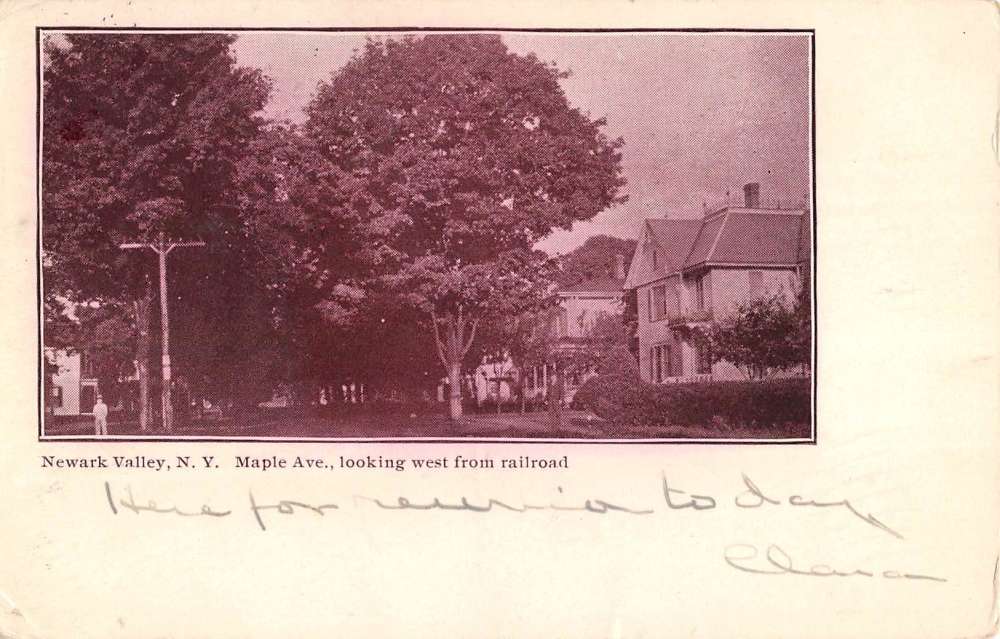 Newark Valley, N. Y. Maple Ave., looking west from railroad
Here for reunion today,
Clara